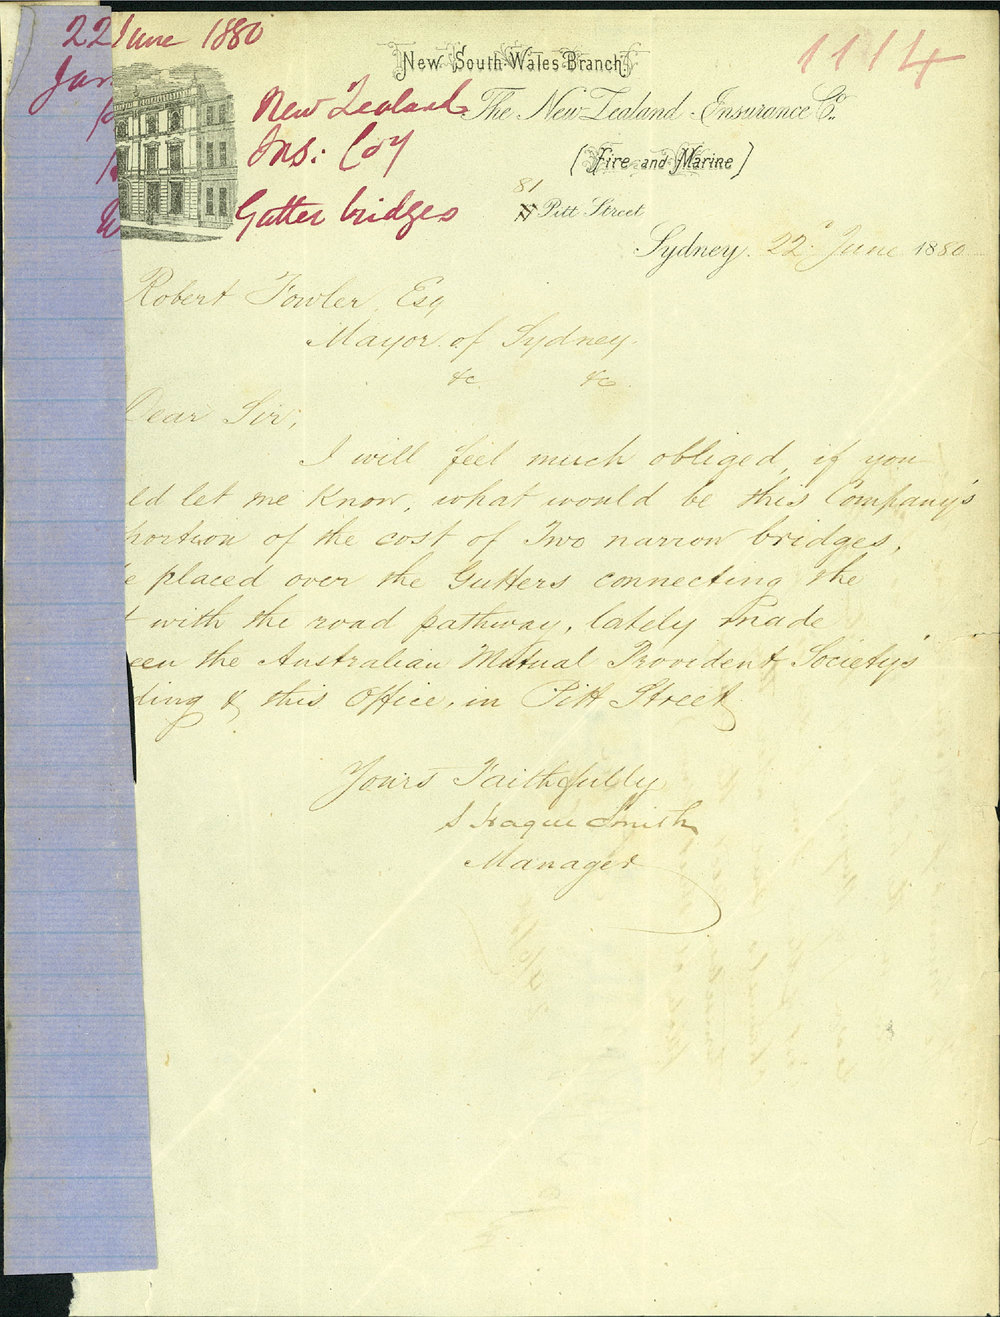 22 June 1880
1114
New South Wales Branch.
New Zealand
The New Zealand Insurance Co.
Ins: Coy
(Fire and Marine)
Gutter bridges
81
Pitt Street
Sydney. 22nd June 1880
Robert Fowler, Esq
Mayor of Sydney.
&c. &c.
Dear Sir,
I will feel much obliged, if you
ld let me know, what would be this Company's
portion of the cost of Two narrow bridges,
e placed over the Gutters connecting the
t with the road pathway, lately made
een the Australian Mutual Provident Society's
ding & this Office, in Pitt Street
Yours Faithfully
S Hague Smith
Manager